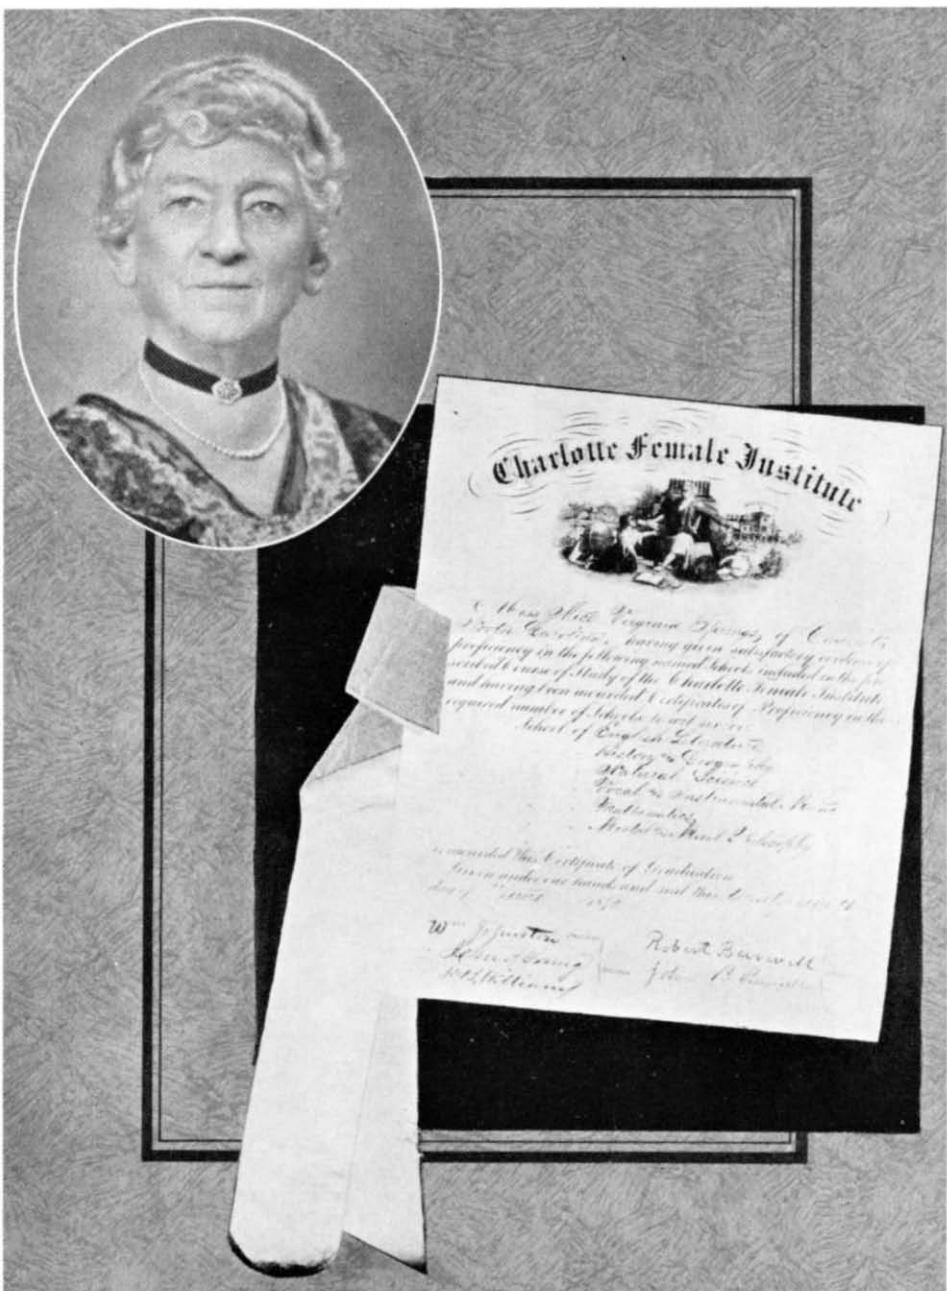 Charlotte Female Institute
Miss Alice Virginia Springs, of
North Carolina, having given satisfactory evidence of
proficiency in the following named Schools included in the pre-
scribed Course of Study of the Charlotte Female Institute
and having been awarded Certificates of Proficiency in the
required number of Schools to wit
School of English Literature
History & Geography
Natural Science
Vocal & Instrumental Music
Mathematics
is awarded this Certificate of Graduation
Given under our hands and seal this
day of
Wm Johnston
Robert Burwell
John B Burwell
Williams